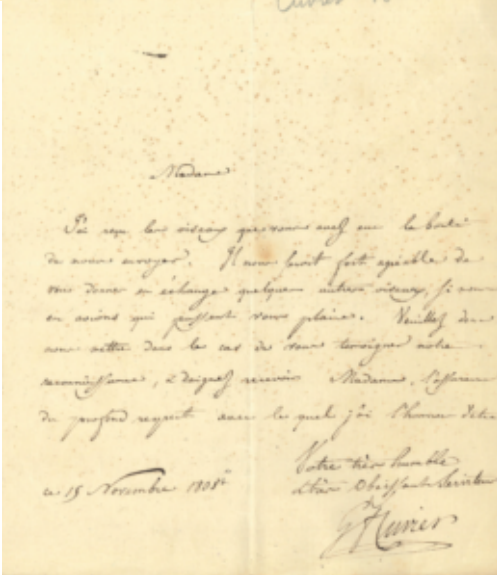 Cuvier
Madame
J'ai reçu les oiseaux que vous avez eue la bonté
de nous envoyer. Il nous seroit fort agréable de
vous donner en échange quelques autres oiseaux, si nous
en avions qui pussent vous plaire. Veuillez donc
nous mettre dans le cas de vous temoigner notre
reconnoissance, & daignez recevoir Madame, l'assurance
du profond respect avec le quel j'ai l'honneur d'etre
Votre très humble
& très Obéissant Serviteur
ce 15 Novembre 1808
G Cuvier